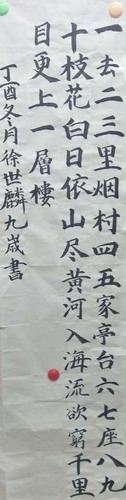 一去二三里烟村四五家亭台六七座八九
十枝花白日依山尽黄河入海流欲窮千里
目更上一層樓
丁酉冬月徐世麟九歲書